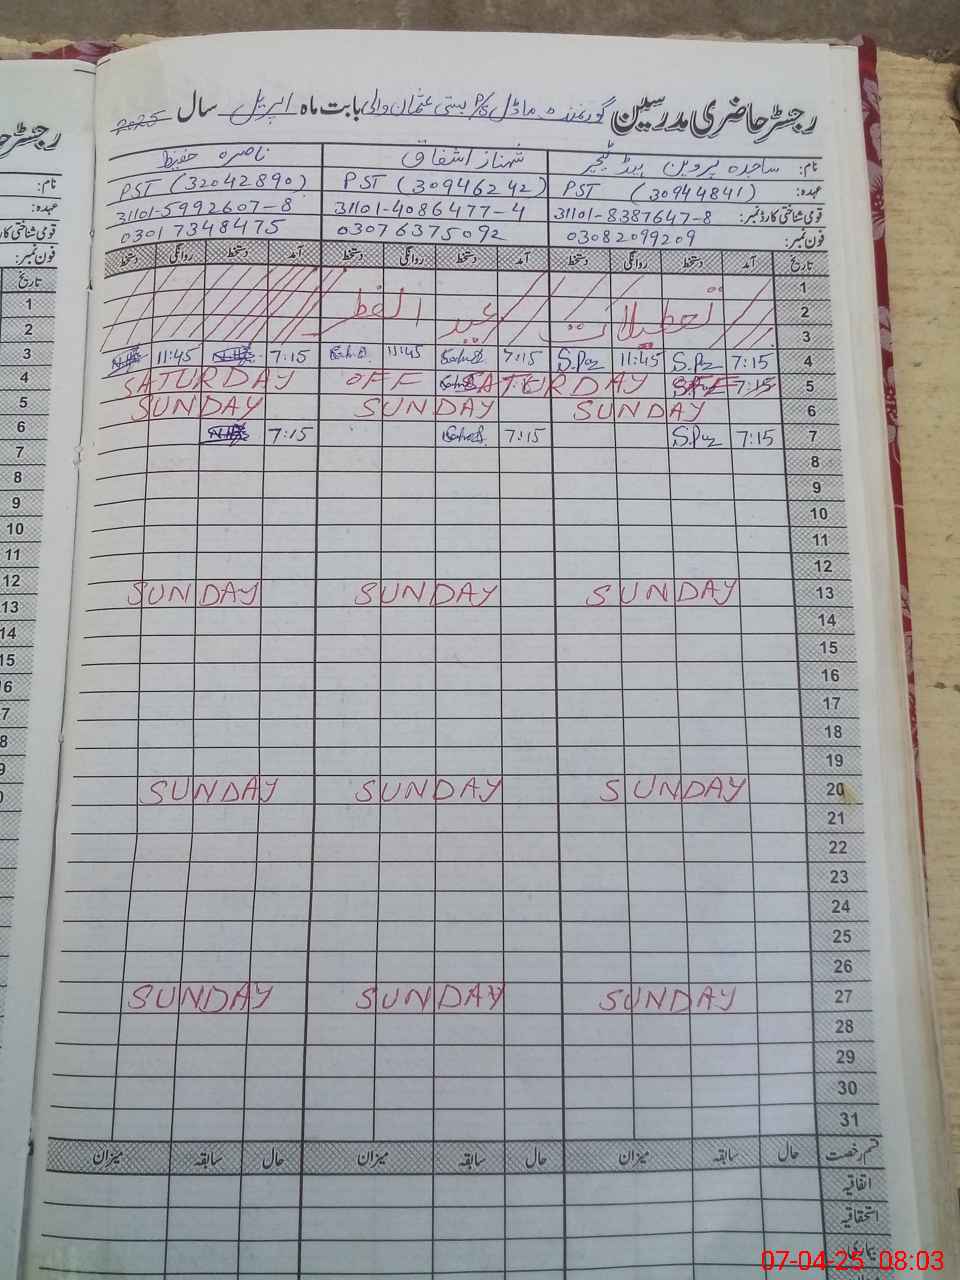 رجسٹر حاضری مدرسین گورنمنٹ ماڈل P/S بستی عثمان والی بابت ماہ اپریل سال 2025
نام: ساجدہ پروین ہیڈ ٹیچر شہناز اشفاق ناصرہ حفیظ
عہدہ: PST (30944841) PST (30946242) PST (32042890)
قومی شناختی کارڈ نمبر: 31101-8387647-8 31101-4086477-4 31101-5992607-8
فون نمبر: 03082099209 03076375092 03017348475
تاریخ آمد دستخط روانگی دستخط آمد دستخط روانگی دستخط آمد دستخط روانگی دستخط
1
2 تعطیلات عید الفطر
3
4 7:15 S.Paz 11:45 S.Paz 7:15 11:45 7:15 11:45
5 7:15 SATURDAY OFF SATURDAY
6 SUNDAY SUNDAY SUNDAY
7 7:15 S.Paz 7:15 7:15
8
9
10
11
12
13 SUNDAY SUNDAY SUNDAY
14
15
16
17
18
19
20 SUNDAY SUNDAY SUNDAY
21
22
23
24
25
26
27 SUNDAY SUNDAY SUNDAY
28
29
30
31
قسم رخصت حال سابقہ میزان حال سابقہ میزان حال سابقہ میزان
اتفاقیہ
استحقاقیہ
بیماری
رجسٹر
نام:
عہدہ:
قومی شناختی کارڈ
فون نمبر:
تاریخ
1
2
3
4
5
6
7
8
9
10
11
12
13
14
15
07-04-25 08:03